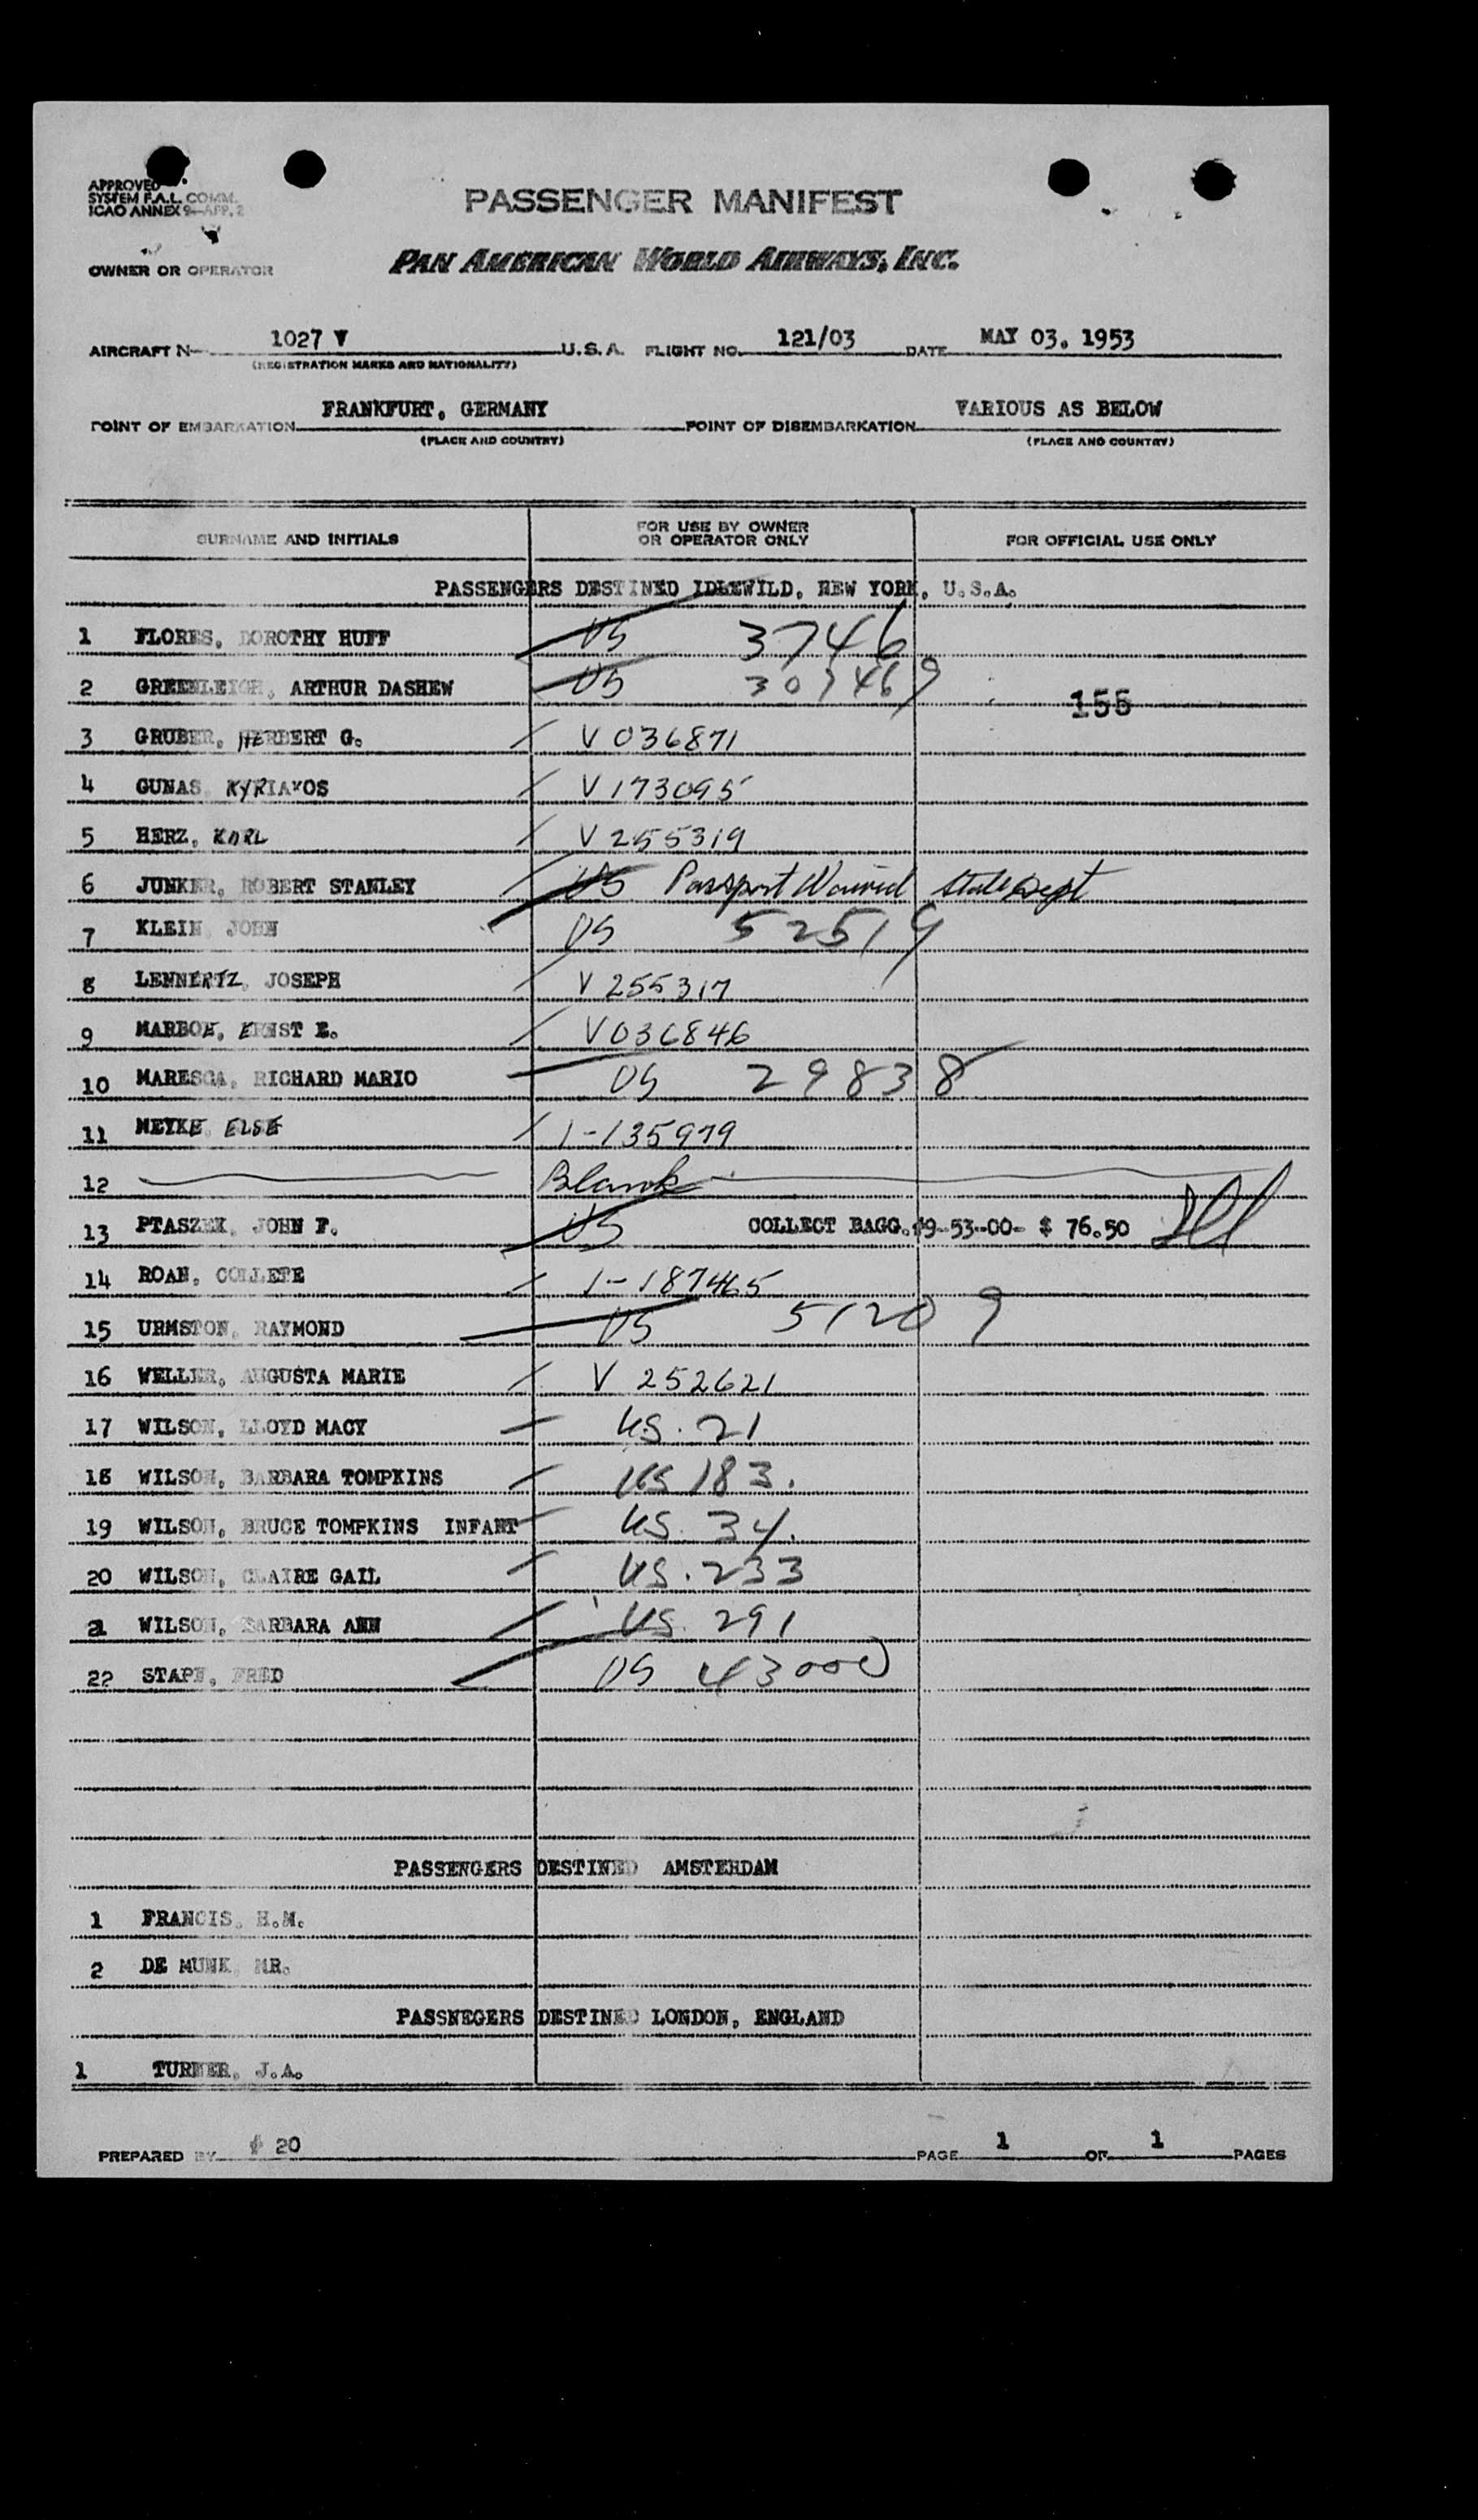 APPROVED
SYSTEM F.A.L. COMM.
ICAO ANNEX 9—APP. 2
PASSENGER MANIFEST
OWNER OR OPERATOR PAN AMERICAN WORLD AIRWAYS, INC.
AIRCRAFT N— 1027 V U.S.A. FLIGHT NO. 121/03 DATE MAY 03. 1953
(REGISTRATION MARKS AND NATIONALITY)
POINT OF EMBARKATION FRANKFURT, GERMANY POINT OF DISEMBARKATION VARIOUS AS BELOW
(PLACE AND COUNTRY) (PLACE AND COUNTRY)
SURNAME AND INITIALS FOR USE BY OWNER OR OPERATOR ONLY FOR OFFICIAL USE ONLY
PASSENGERS DESTINED IDLEWILD, NEW YORK, U.S.A.
1 FLORES, DOROTHY HUFF US 3746
2 GREENLEIGH, ARTHUR DASHEW US 307469 155
3 GRUBER, HERBERT G. V 036871
4 GUNAS, KYRIAKOS V 173095
5 HERZ, KARL V 255319
6 JUNKER, ROBERT STANLEY US Passport Waived State Dept
7 KLEIN, JOHN US 52519
8 LENNERTZ, JOSEPH V 255317
9 MARBOE, ERNST E. V 036846
10 MARESCA, RICHARD MARIO US 29838
11 MEYKE, ELSE 1-135979
12 Blank
13 PTASZEK, JOHN F. US COLLECT BAGG. #9-53-00- $ 76.50
14 ROAN, COLLETE 1-187465
15 URMSTON, RAYMOND US 51209
16 WELLER, AUGUSTA MARIE V 252621
17 WILSON, LLOYD MACY US. 21
18 WILSON, BARBARA TOMPKINS US 183.
19 WILSON, BRUCE TOMPKINS INFANT US. 34.
20 WILSON, CLAIRE GAIL US. 233
21 WILSON, BARBARA ANN US. 291
22 STAPE, FRED US 43000
PASSENGERS DESTINED AMSTERDAM
1 FRANCIS, H.M.
2 DE MUNK, MR.
PASSNEGERS DESTINED LONDON, ENGLAND
1 TURNER, J.A.
PREPARED BY # 20 PAGE 1 OF 1 PAGES